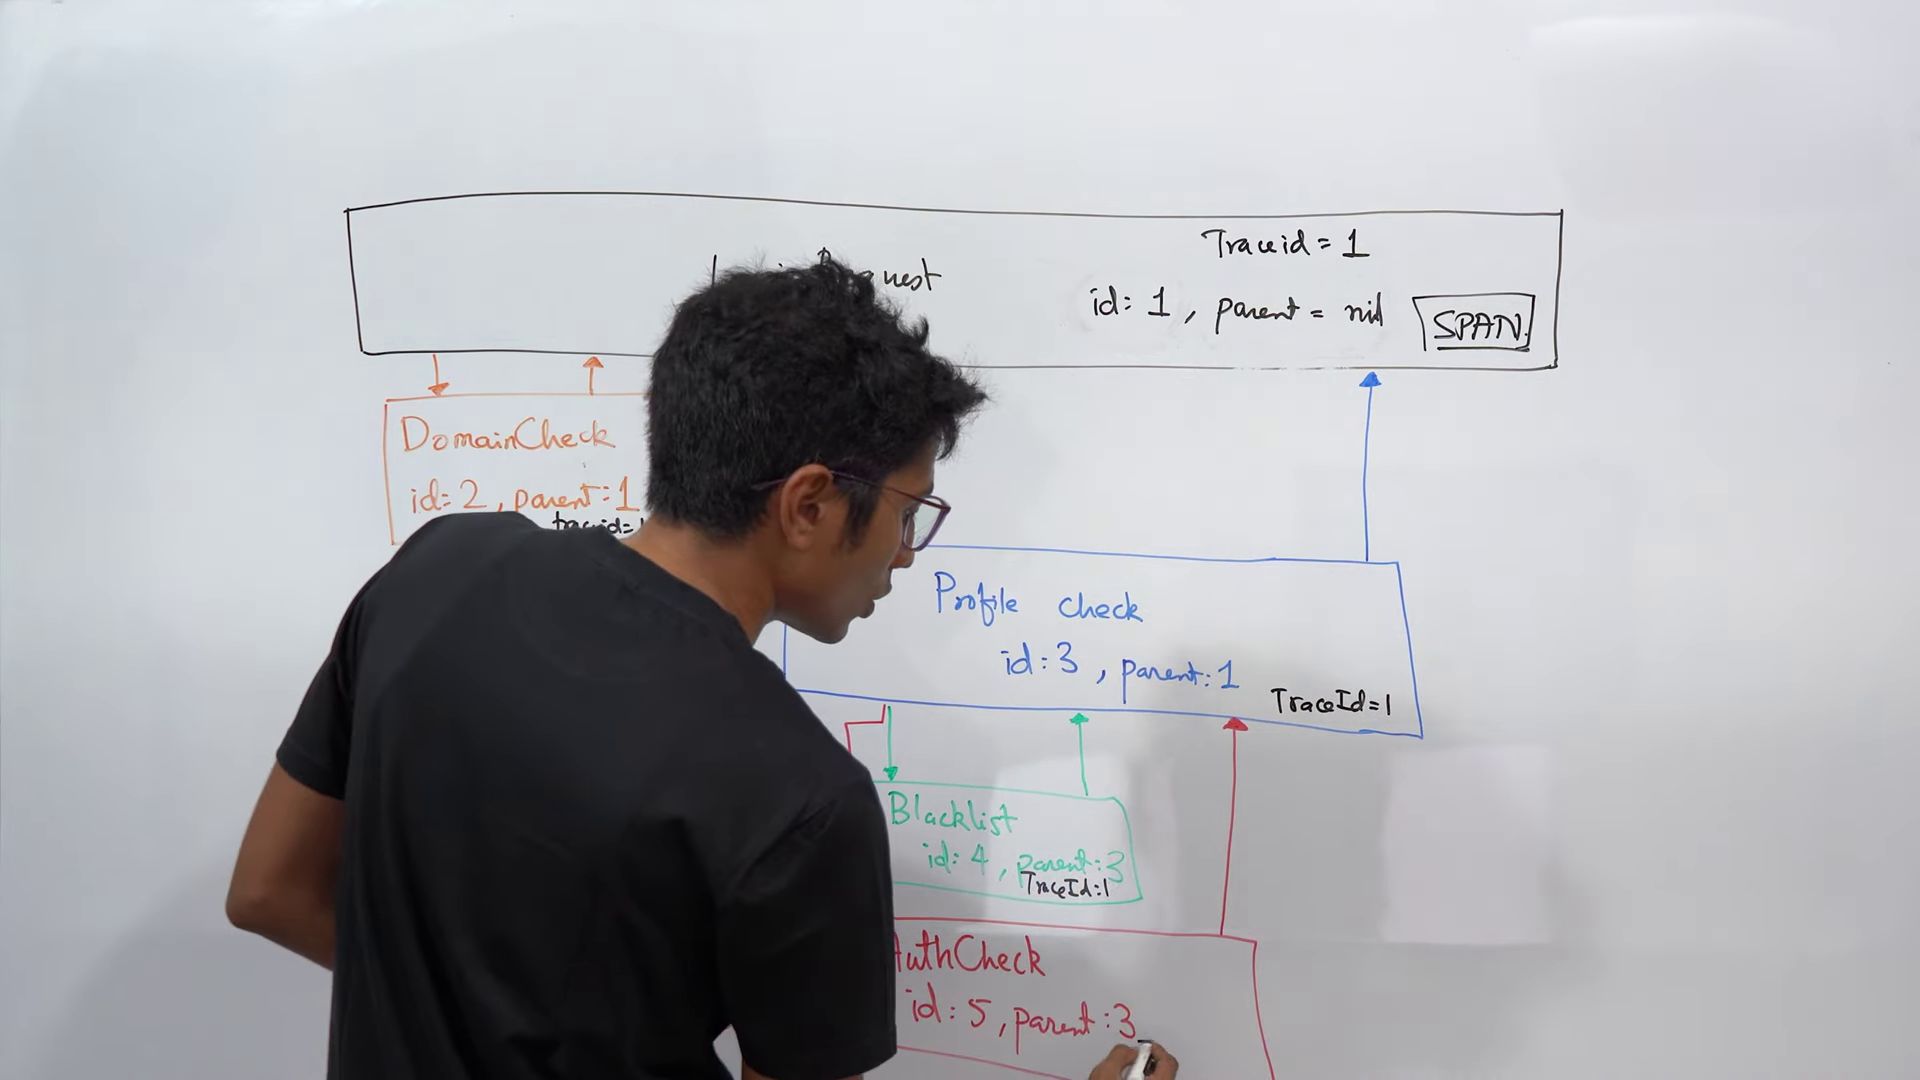 Traceid = 1
id: 1, parent = nil
SPAN.
DomainCheck
id: 2, parent: 1
Profile check
id: 3, parent: 1
TraceId=1
Blacklist
id: 4, parent: 3
TraceId:1
AuthCheck
id: 5, parent: 3